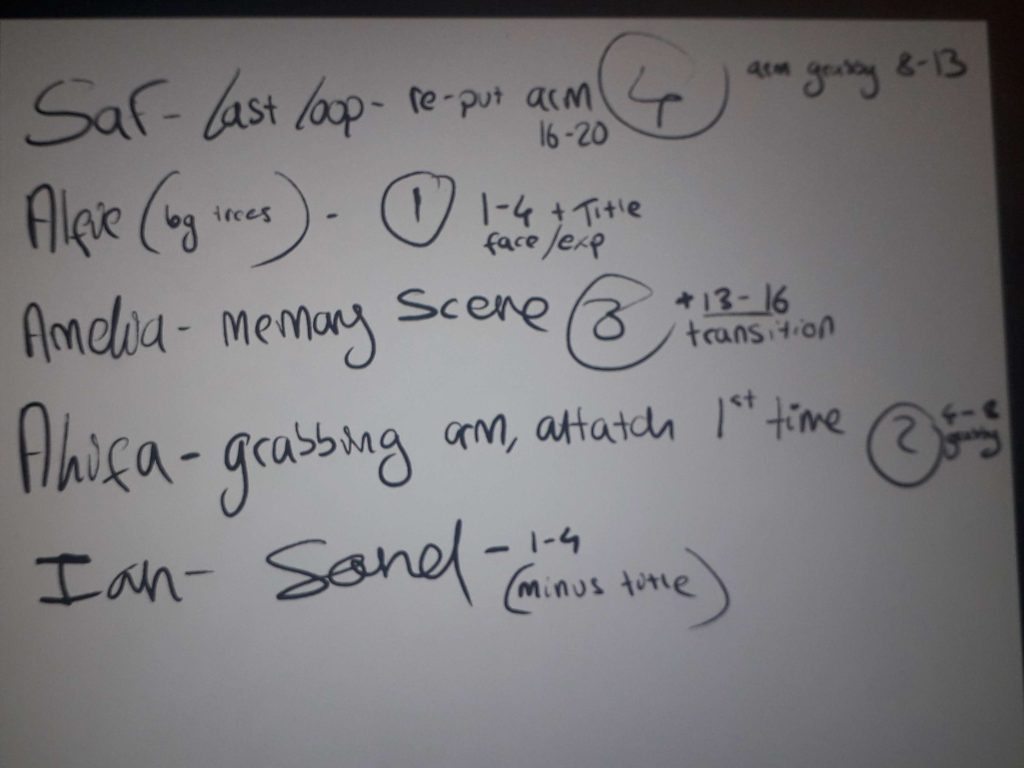 Saf - Last loop - re-put arm 4 arm grabby 8-13
16-20
Alfie (bg trees) - 1 1-4 + Title
face/exp
Amelia - memory scene 3 + 13-16
transition
Ahifa - grabbing arm, attatch 1st time 2 4-8
grabby
Ian - Sand - 1-4
(minus title)